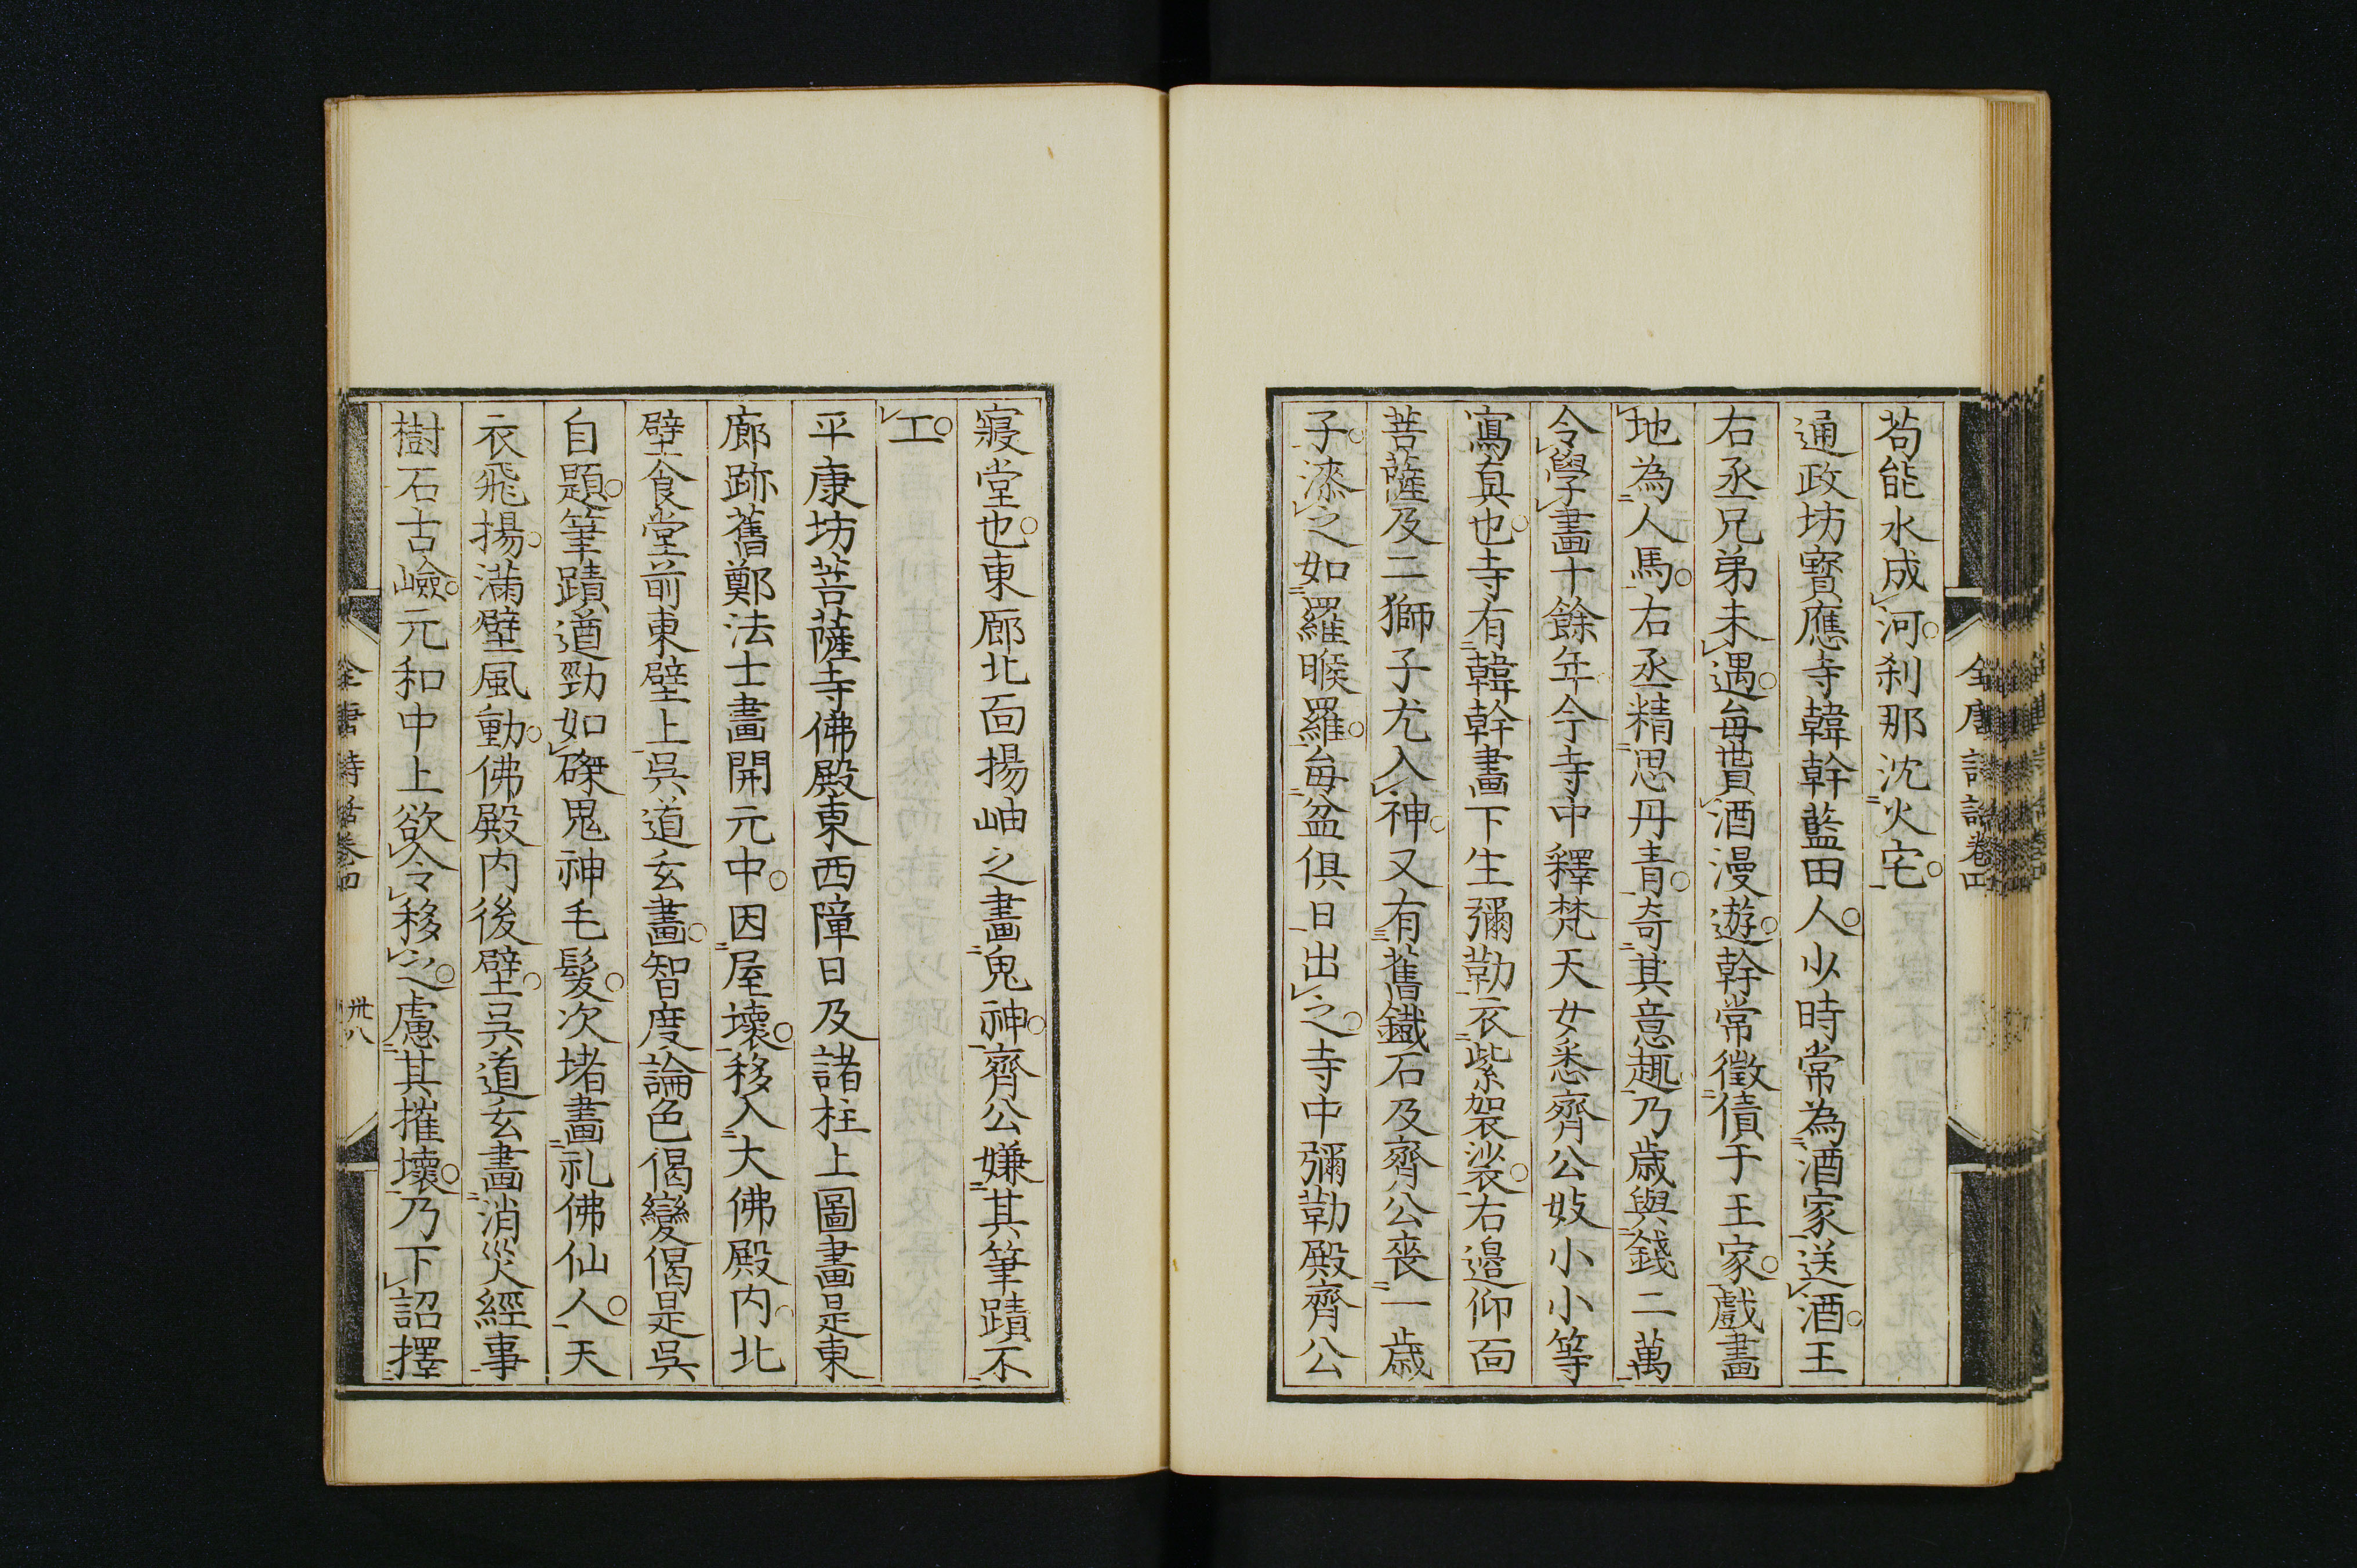 苟能水成河刹那沈火宅
通政坊寶應寺韓幹藍田人少時常為酒家送酒王
右丞兄弟未遇每貰酒漫遊幹常徵債于王家戲畫
地為人馬右丞精思丹青奇其意趣乃歲與錢二萬
令學畫十餘年今寺中釋梵天女悉齊公妓小小等
寫真也寺有韓幹畫下生彌勒衣紫袈裟右邉仰面
菩薩及二獅子尤入神又有舊鐵石及齊公喪一歲
子漆之如羅睺羅每盆供日出之寺中彌勒殿齊公
全唐詩話卷四
寢堂也東廊北面揚岫之畫鬼神齊公嫌其筆蹟不
工
平康坊菩薩寺佛殿東西障日及諸柱上圖畫是東
廊跡舊鄭法士畫開元中因屋壞移入大佛殿内北
壁食堂前東壁上吳道玄畫智度論色偈變偈是吳
自題筆蹟遒勁如磔鬼神毛髮次堵畫礼佛仙人天
衣飛揚滿壁風動佛殿内後壁吳道玄畫消災經事
樹石古嶮元和中上欲令移之慮其摧壞乃下詔擇
全唐詩話卷四 卅八